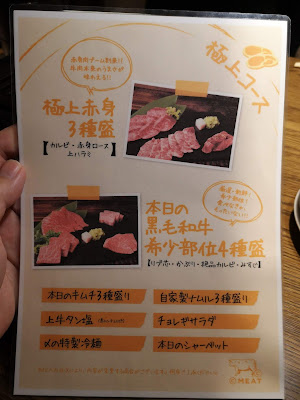 極上コース
赤身肉ブーム到来!!
味わえる!!
極上赤身
3種盛
【カルビ・赤身ロース・
上ハラミ】
本日の
黒毛和牛
希少部位4種盛
【リブ芯・かぶり・極上カルビ・みすじ】
本日のキムチ3種盛り
自家製ナムル3種盛り
上牛タン塩
チョレギサラダ
〆の特製冷麺
本日のシャーベット
MEAT